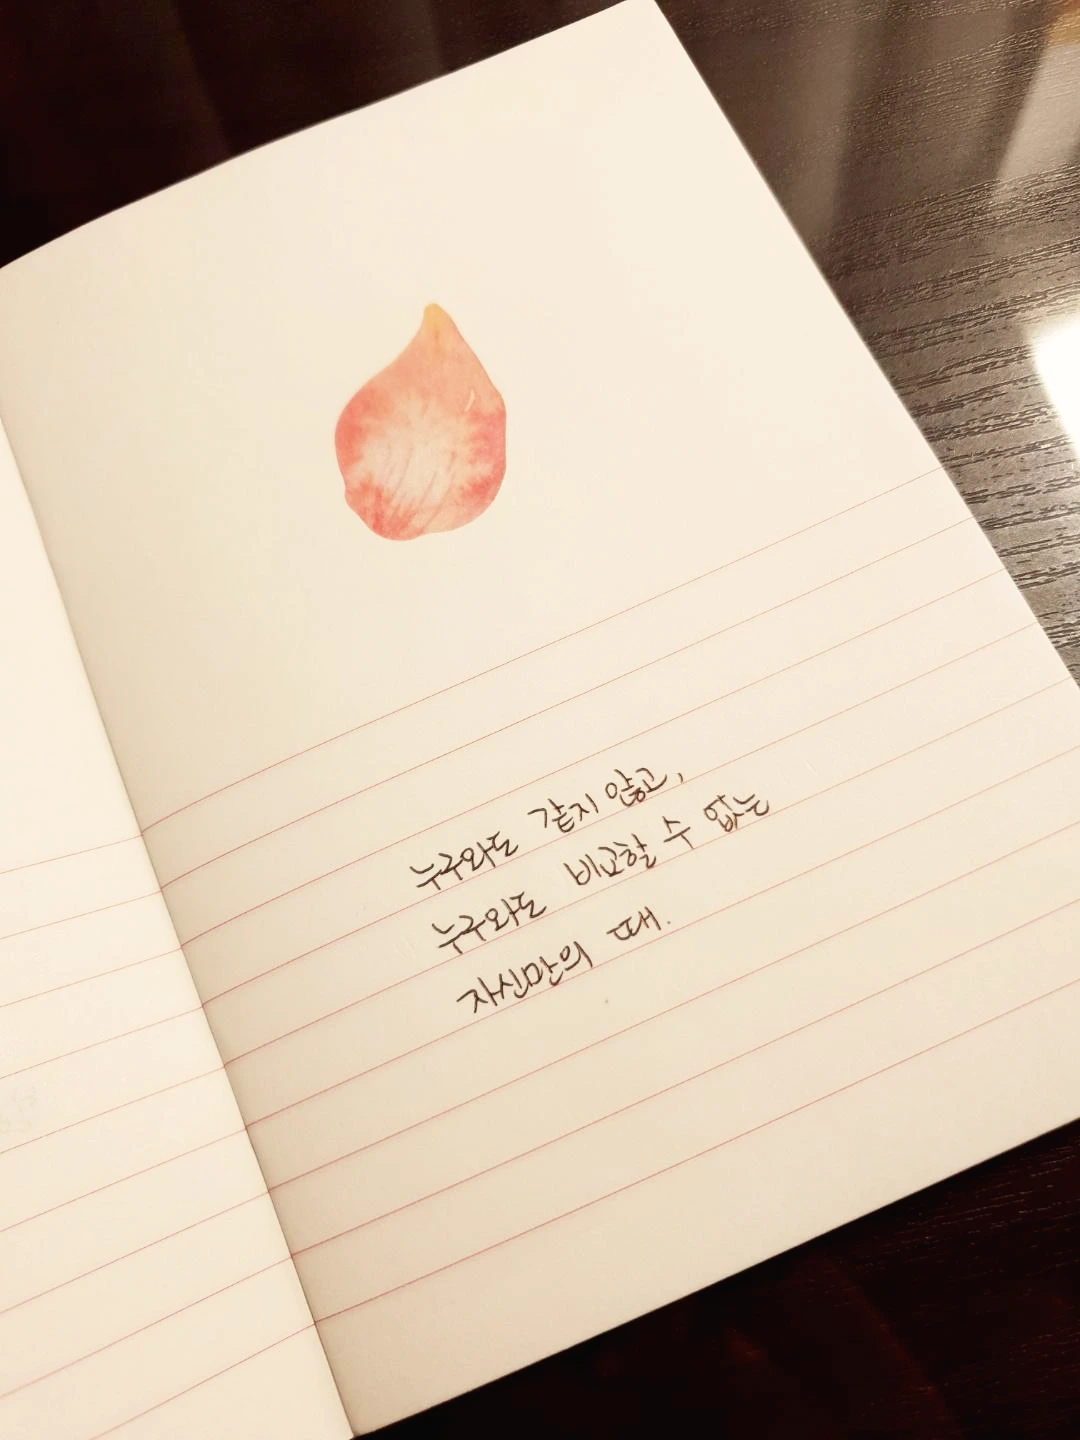 누구와도 같지 않고,
누구와도 비교할 수 없는
자신만의 때.